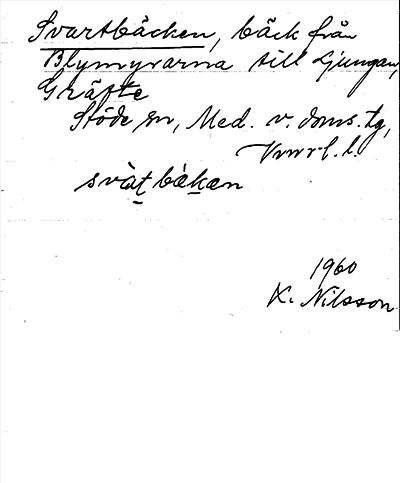 Svartbäcken, bäck från
Blymyrarna till Ljungan,
Gräfte
Stöde sn, Med. v. doms. tg,
Vnrl. l.
svàt bákan
1960
K. Nilsson